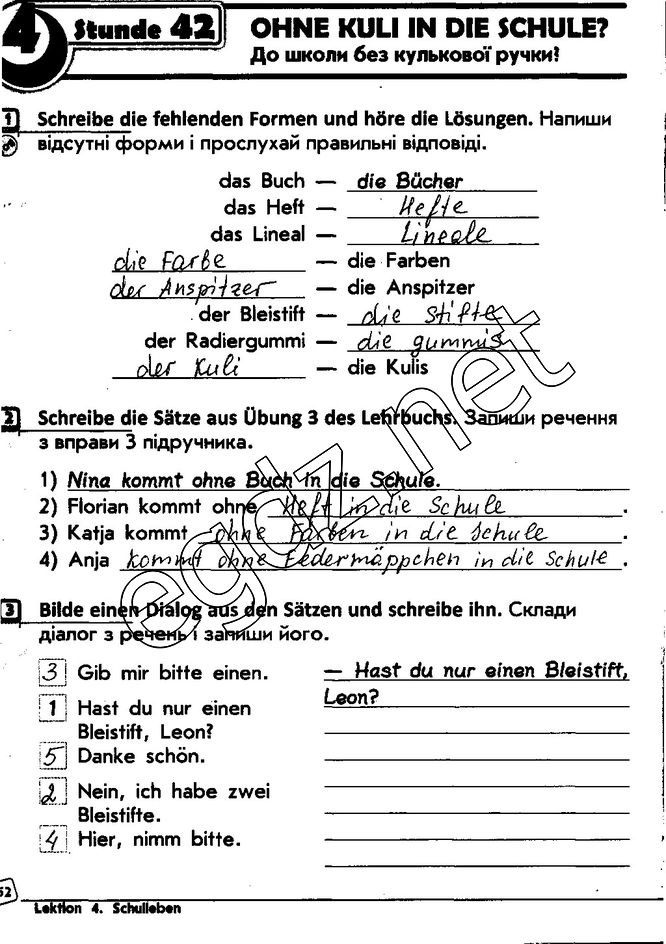 4 Stunde 42
OHNE KULI IN DIE SCHULE?
До школи без кулькової ручки?
1 Schreibe die fehlenden Formen und höre die Lösungen. Напиши
відсутні форми і прослухай правильні відповіді.
das Buch — die Bücher
das Heft — Hefte
das Lineal — Lineale
die Farbe — die Farben
der Anspitzer — die Anspitzer
der Bleistift — die Stifte
der Radiergummi — die gummis
der Kuli — die Kulis
2 Schreibe die Sätze aus Übung 3 des Lehrbuchs. Запиши речення
з вправи 3 підручника.
1) Nina kommt ohne Buch in die Schule.
2) Florian kommt ohne Heft in die Schule.
3) Katja kommt ohne Farben in die Schule.
4) Anja kommt ohne Federmäppchen in die Schule.
3 Bilde einen Dialog aus den Sätzen und schreibe ihn. Склади
діалог з речень і запиши його.
3 Gib mir bitte einen.
1 Hast du nur einen
Bleistift, Leon?
5 Danke schön.
2 Nein, ich habe zwei
Bleistifte.
4 Hier, nimm bitte.
— Hast du nur einen Bleistift,
Leon?
52
Lektion 4. Schulleben
egdz.net